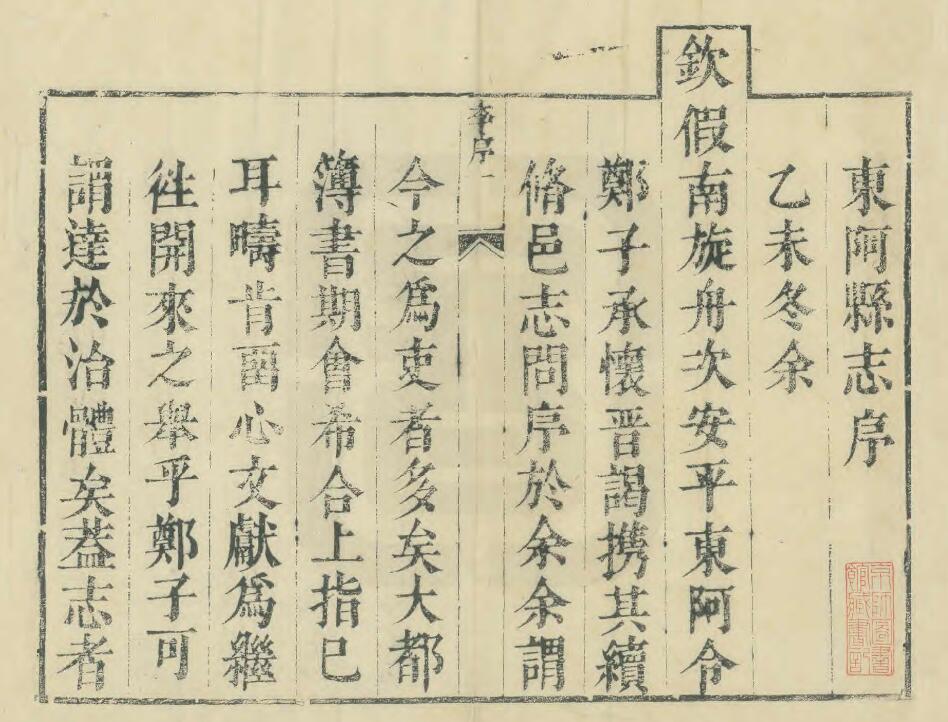 東阿縣志序
乙未冬余
欽假南旋舟次安平東阿令
鄭子承懷晋謁携其續
脩邑志問序於余余謂
李序一
今之爲吏者多矣大都
簿書期會希合上指已
耳疇肯畱心文獻爲繼
徃開來之舉乎鄭子可
謂達於治體矣葢志者
京師圖書
館藏書記